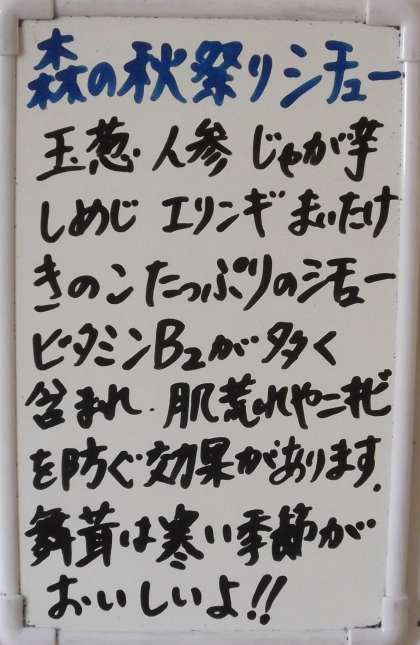 森の秋祭りシチュー
玉葱 人参 じゃが芋
しめじ エリンギ まいたけ
きのこたっぷりのシチュー
ビタミンB₂が多く
含まれ、肌荒れやニキビ
を防ぐ効果があります。
舞茸は寒い季節が
おいしいよ!!